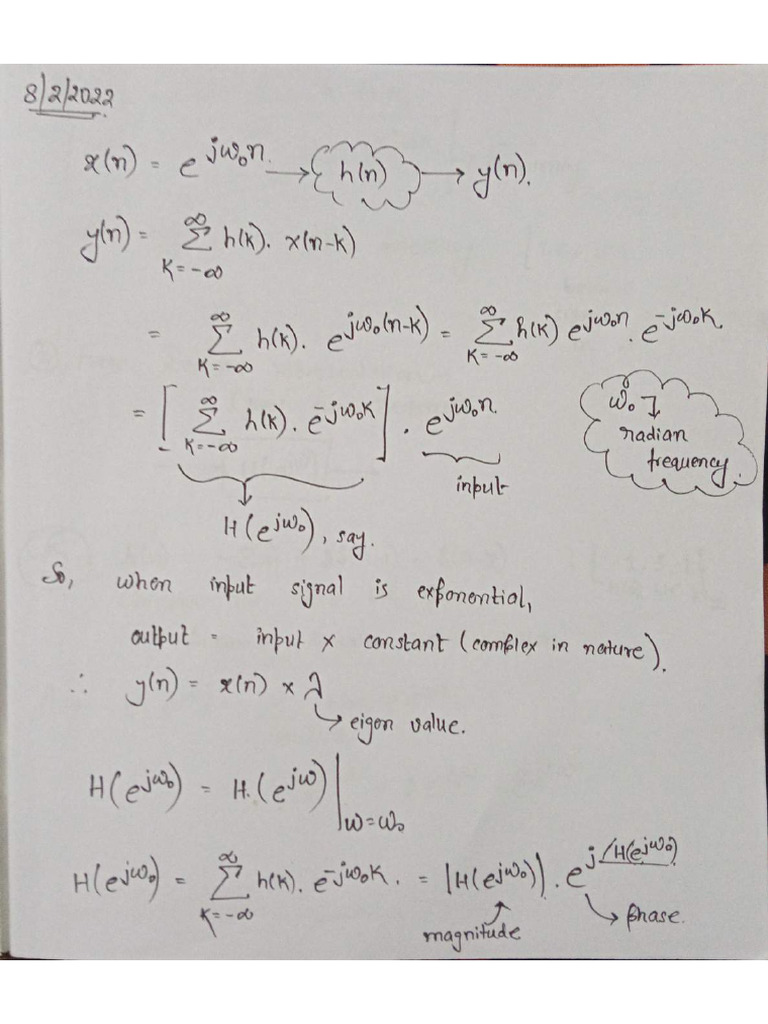 8/2/2022
x(n) = e^{jω₀n} → h(n) → y(n).
y(n) = ∑_{K=-∞}^{∞} h(k). x(n-k)
= ∑_{K=-∞}^{∞} h(k). e^{jω₀(n-k)} = ∑_{K=-∞}^{∞} h(k) e^{jω₀n}. e^{-jω₀k}
= [∑_{K=-∞}^{∞} h(k). e^{-jω₀k}]. e^{jω₀n}.
ω₀ → radian frequency.
input
H(e^{jω₀}), say.
So, when input signal is exponential,
output = input x constant (complex in nature).
∴ y(n) = x(n) x λ
→ eigen value.
H(e^{jω₀}) = H(e^{jω})|_{ω=ω₀}
H(e^{jω₀}) = ∑_{K=-∞}^{∞} h(k). e^{-jω₀k}. = |H(e^{jω₀})|. e^{j∠H(e^{jω₀})}
magnitude → phase.